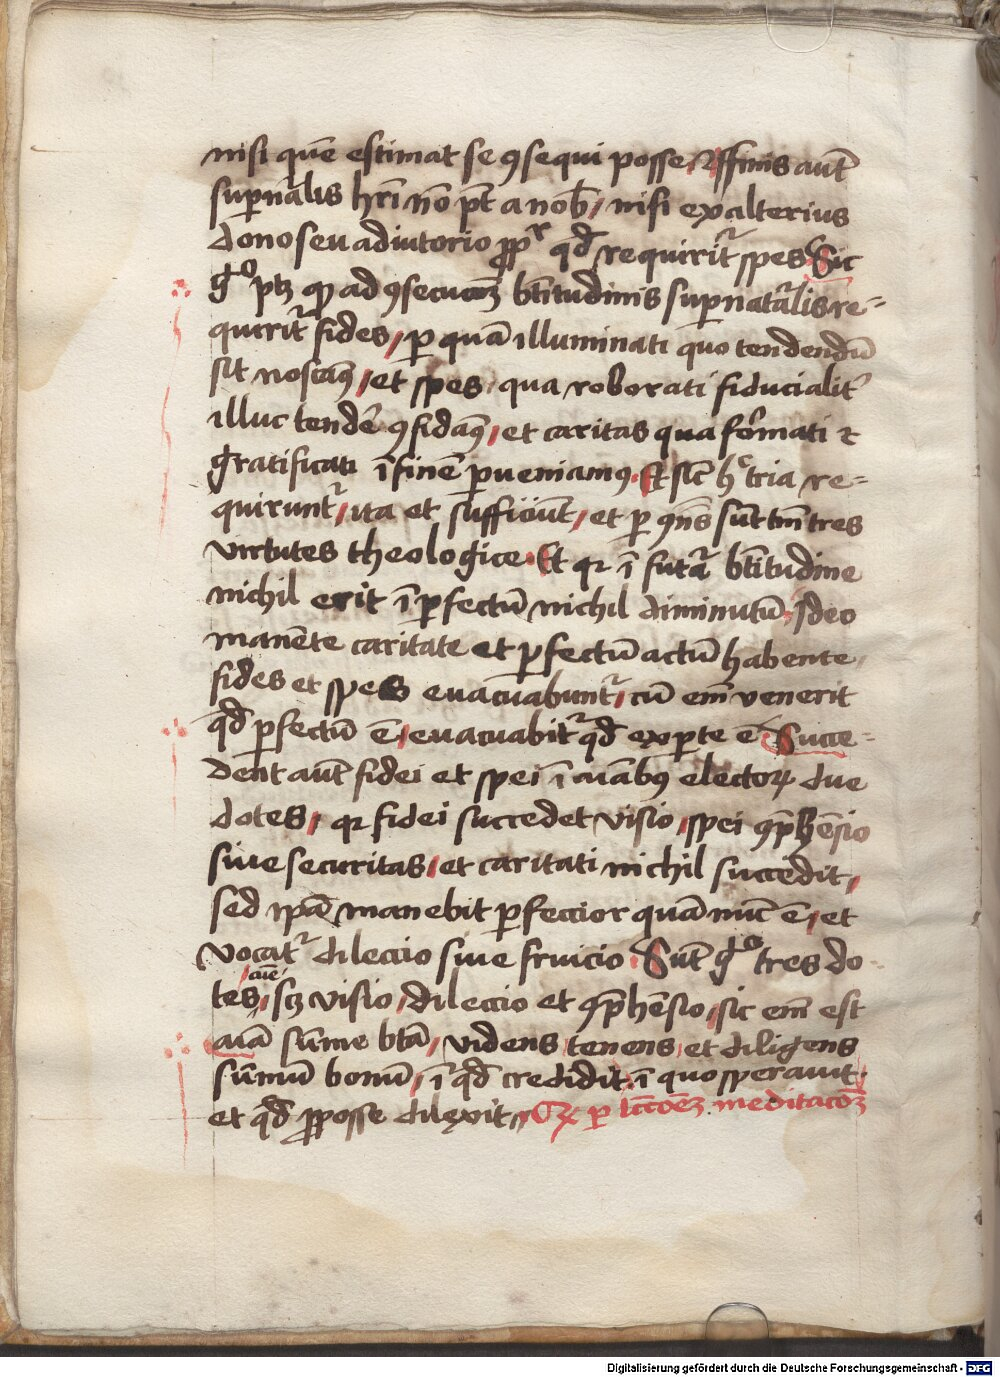 nisi quē estimat se ꝯsequi posse. Et finis aut̄
sup̄nālis hr̄i nō pt̄ a nob̄, nisi ex alterius
dono seu adiutorio ꝓpr̄ qd̄ requirit̄ spes Sic
gͦ ptꝫ ꝙ ad ꝯsecucōꝫ bt̄itudinis sup̄natalis re-
quirit̄ fides, ꝑ quā illuminati quo tendendū
sit noscamꝰ, et spes qua roborati fiducialit̄
illuc tendē ꝯfidamꝰ, et caritas qua formati ⁊
gratificati ī finē ꝑueniamꝰ. Et sic̄ h̄ tria re-
quirunt̄, ita et sufficiūt, et ꝑ ꝯn̄s sūt tm̄ tres
virtutes theologice. Et qꝛ ī fut̄a bt̄itudine
nichil erit īꝑfectū nichil diminutū, Ideo
manēte caritate et ꝑfectū actū habente,
fides et spes evacuabunt̄, cū em̄ venerit
qd̄ ꝑfectū ē, evacuabit̄ qd̄ ex ꝑte ē Succe-
dent aut̄ fidei et spei ī aīabꝰ electoꝝ due
dotes, qꝛ fidei succedet visio, spei ꝯp̄hēsio
siue securitas, et caritati nichil succedit,
sed ip̄a manebit ꝑfeccior quā nūc ē, et
vocat̄ dileccio siue fruicio. Sūt gͦ tres do-
aīe
tes, scꝫ visio, dileccio et ꝯp̄hēsio, sic em̄ est
aīa sūme bt̄a, videns tenens et diligens
sūmū bonū, ī qd̄ credidit, ī quo sperauit
et qd̄ ꝓ posse dilexit, Ex ꝑ lcc̄oēꝫ meditacōꝫ
Digitalisierung gefördert durch die Deutsche Forschungsgemeinschaft - DFG